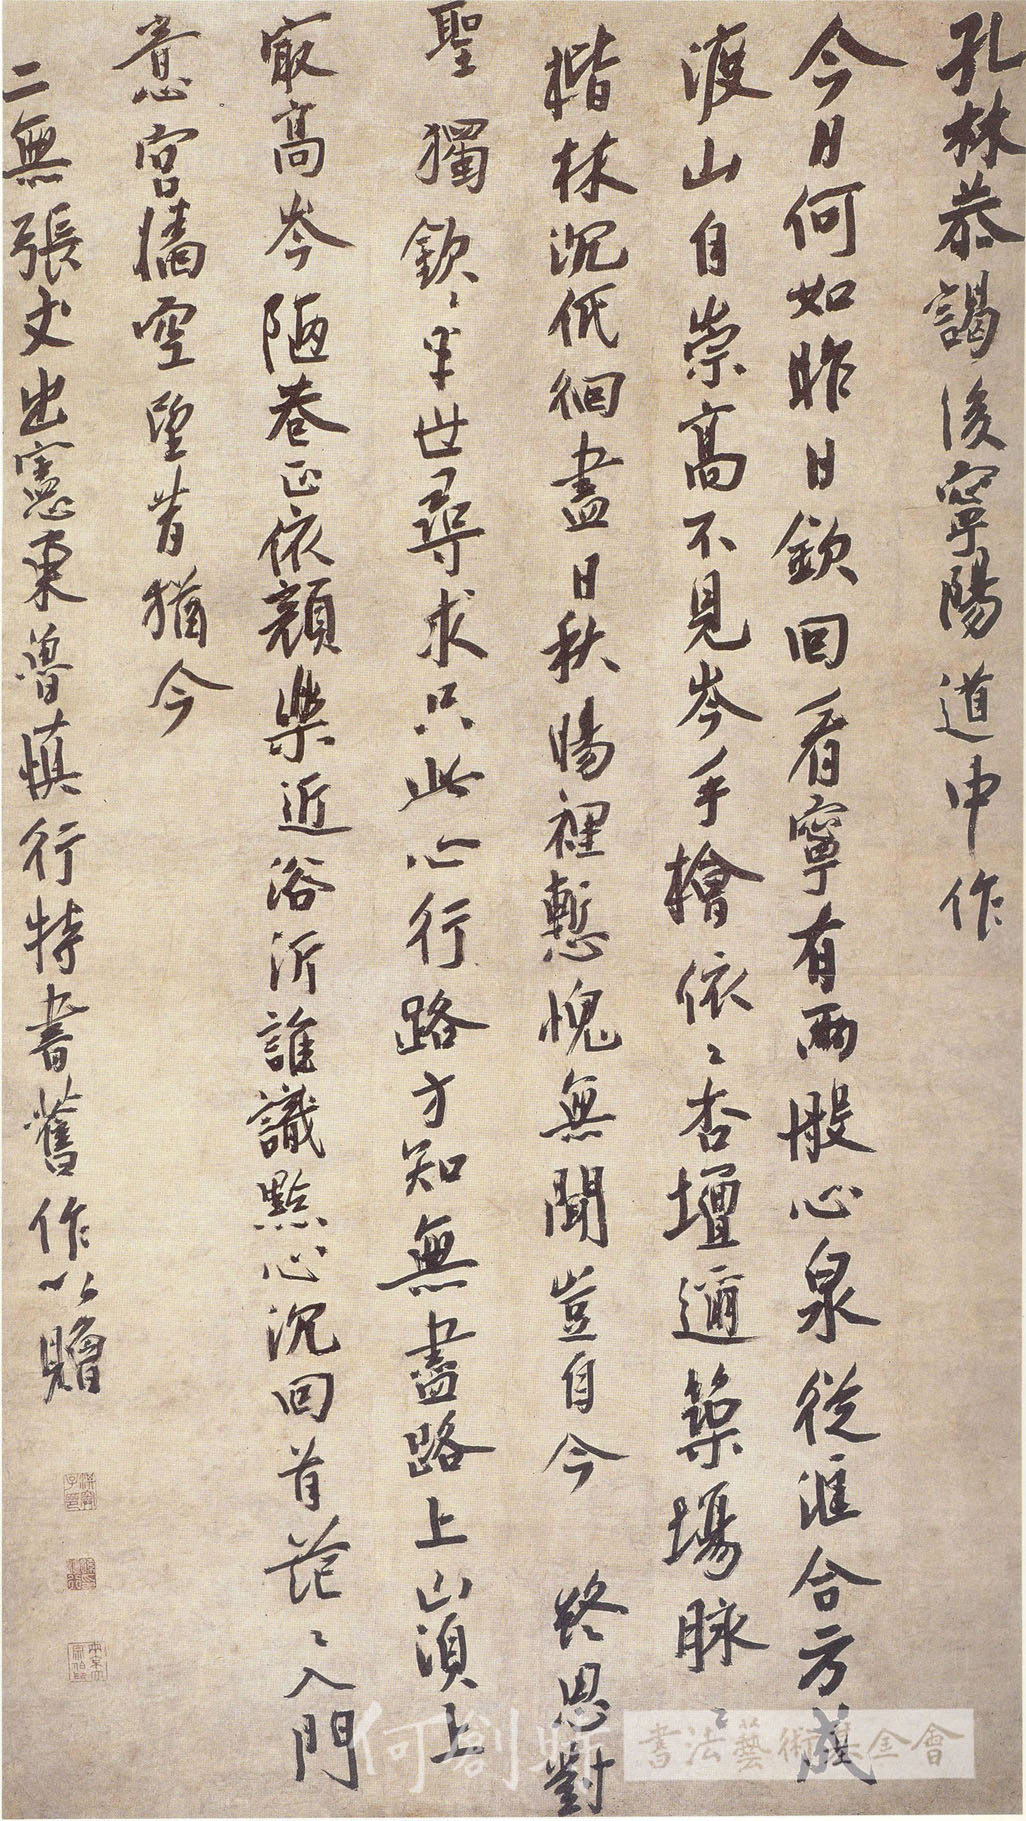 孔林恭謁後寧陽道中作
今日何如昨日欽回看寧有兩般心泉從匯合方成
渡山自崇高不見岑手檜依〻杏壇邇築場脉〻
楷林沉低徊盡日秋暘裡慙愧無聞豈自今 終思對
聖獨欽〻半世尋求只此心行路方知無盡路上山須上
最高岑陋巷正依顏樂近浴沂誰識點心沉回首茫〻入門
意宮牆空望昔猶今
二無張丈出憲東魯慎行特書舊作以贈
何創時書法藝術基金會